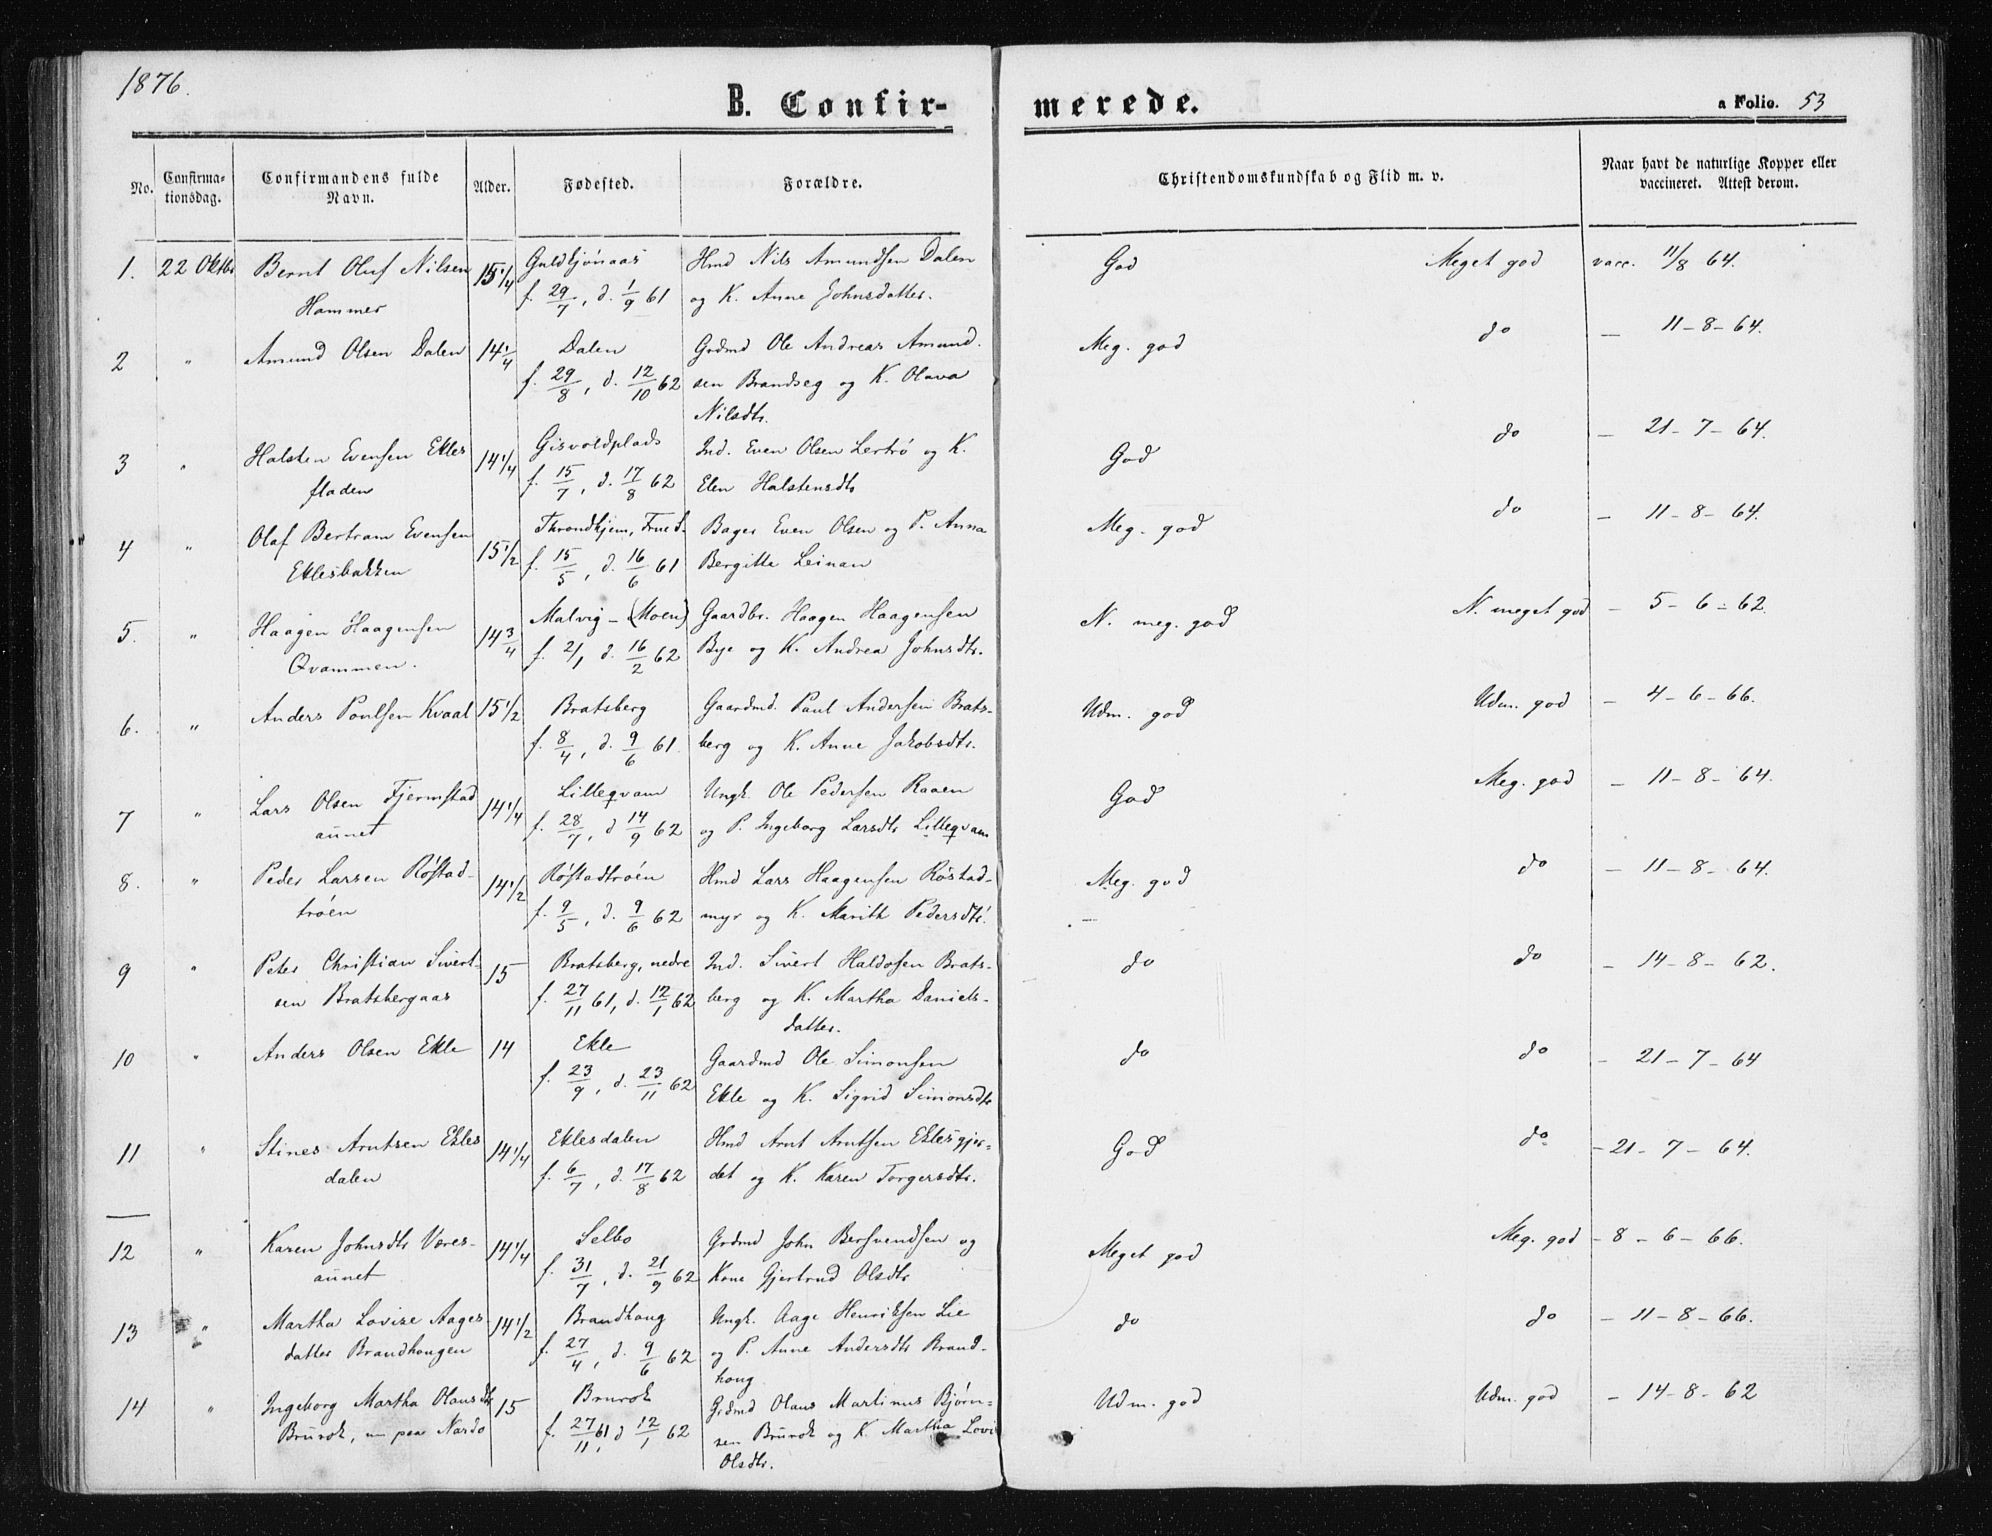 1876.
B. Confir-
merede.
a Folio. 53
No.
Confirma-
tionsdag.
Confirmandens fulde
Navn.
Alder.
Fødested.
Forældre.
Christendomskundskab og Flid m. v.
Naar havt de naturlige Kopper eller
vaccineret. Attest derom.
1. 22 Oktbr Bernt Oluf Nilsen 15 1/4 Hmd Nils Amundsen Dalen God Meget god vacc. 11/8 64.
Hammer f. 29/7, d. 1/9 61 og K. Anne Johnsdatter.
2 " Amund Olsen Dalen 14 1/4 Dalen Grdmd Ole Andreas Amund- Meg. god do — 11-8-64.
f. 29/8, d. 12/10 62 sen Brandseg og K. Olava
Nilsdtr.
3 " Halsten Evensen Ekles 14 1/4 Gisvoldplads Ind. Even Olsen Lertrö og K. God do — 21-7-64.
fladen f. 15/7, d. 17/8 62 Elen Halstensdtr
4 " Olaf Bertram Evensen 15 1/2 Throndhjem, Frue S. Bager Even Olsen og P. Anna Meg. god do — 11-8-64.
Eklesbakken f. 15/5, d. 16/6 61 Bergitte Leinan
5. " Haagen Haagensen 14 3/4 Malvig - (Moen) Gaardbr. Haagen Haagensen N. meg. god N. meget god — 5-6-62.
Qvammen. f. 2/1 d. 16/2 62 Bye og K. Andrea Johnsdtr.
6. " Anders Poulsen Kvaal 15 1/2 Bratsberg Gaardmd. Paul Andersen Brats- Udm. god Udm. god — 4-6-66.
f. 8/4, d. 9/6 61. berg og K. Anne Jakobsdtr.
7 " Lars Olsen Fjermstad 14 1/4 Lilleqvam Ungk. Ole Pedersen Raaen God Meg. god — 11-8-64.
aunet f. 28/7, d 14/9 62 og P. Ingeborg Larsdtr Lilleqvam
8. " Peder Larsen Röstad- 14 1/2 Röstadtröen Hmd Lars Haagensen Röstad- Meg. god do — 11-8-64.
tröen f. 9/5, d. 9/6 62 myr og K. Marith Pedersdtr.
9 " Peter Christian Sivert- 15 Bratsberg, nedre Ind. Sivert Haldosen Brats- do do — 14-8-62.
sen Bratsbergaas f. 27/11 61, d. 12/1 62 berg og K. Martha Daniels-
datter.
10 " Anders Olsen Ekle 14 Ekle Gaardmd Ole Simonsen do do — 21-7-64
f. 23/9, d. 23/11 62 Ekle og K. Sigrid Simonsdtr
11 " Stiner Arntsen Ekles 14 1/4 Eklesdalen Hmd Arnt Arntsen Eklesgjer- God do — 21-7-64.
dalen f. 6/7, d. 17/8 62 det og K. Karen Torgersdtr.
12 " Karen Johnsdtr Væres- 14 1/4 Selbo Grdmd John Bersvendsen og Meget god Meg. god — 8-6-66.
aunet f. 31/7, d. 21/9 62 Kone Gjertrud Olsdtr
13 " Martha Lovise Aages 14 1/2 Brandhaug Ungk. Aage Henriksen Lie do do — 11-8-66.
datter Brandhaugen f. 27/4, d. 9/6 62 og P. Anne Andersdtr Brand-
haug
14 " Ingeborg Martha Olausdtr 15 Brurok Grdmd Olaus Martinus Bjørn- Udm. god Udm. god — 14-8-62
Brurok, nu paa Nardo f. 27/11 61, d 12/1 62 sen Brurok og K. Martha Lovi
Olsdtr.